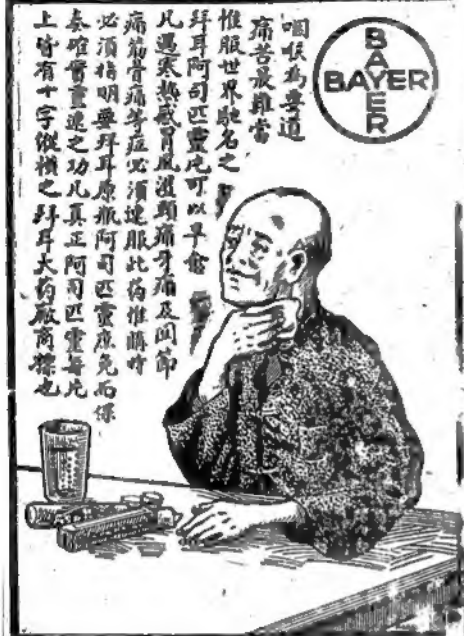 BAYER
BAYER
咽喉為要道
痛苦最難當
惟服世界馳名之
拜耳阿司匹靈片可以早愈
凡遇寒熱感冒風溼頭痛牙痛及関節
痛筋骨痛等症必須速服此药惟購時
必須指明要拜耳原瓶阿司匹靈庶免而保
奏確實靈速之功凡真正阿司匹靈每片
上皆有十字縱橫之拜耳大药厰商標也